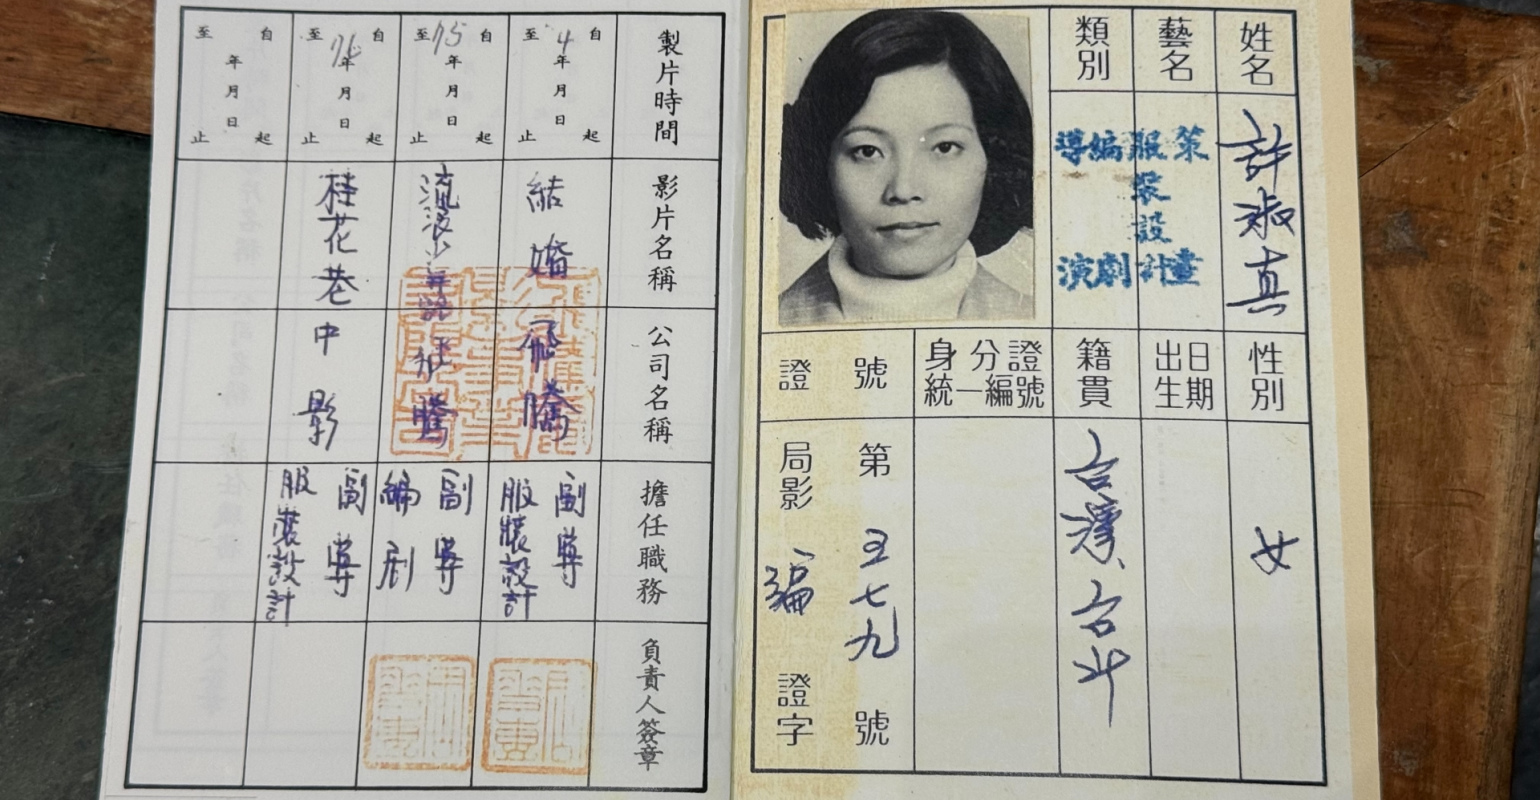 姓名
許淑真
藝名
類別
策畫
服裝設計
編劇
導演
性別
女
出生日期
籍貫
台灣、台北
身分證
統一編號
證號
第五七九號
局影編證字
製片時間
影片名稱
公司名稱
擔任職務
負責人簽章
自 4年月日 起
至 止
結婚
飛騰
副導
服裝設計
自 75年月日 起
至 止
流浪少年路
飛騰
副導
編劇
自 76年月日 起
至 止
桂花巷
中影
副導
服裝設計
自 年月日 起
至 止